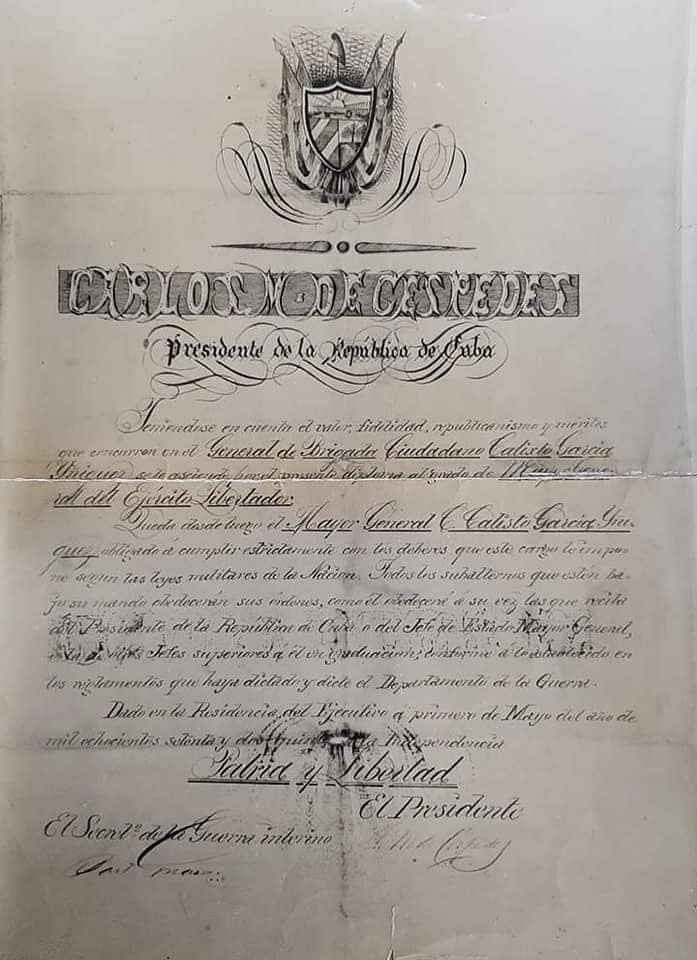 CARLOS M. DE CESPEDES
Presidente de la República de Cuba
Teniendose en cuenta el valor, fidelidad, republicanismo y méritos
que concurren en el General de Brigada Ciudadano Calisto Garcia
Yñiguez se le asciende por el presente diploma al grado de Mayor Gene-
ral del Ejército Libertador
Queda desde luego el Mayor General C. Calisto Garcia Yñi-
guez obligado á cumplir estrictamente con los deberes que este cargo le impo-
ne segun las leyes militares de la Nacion. Todos los subalternos que estén ba-
jo su mando obedecerán sus órdenes, como él obedecerá á su vez las que reciba
del Presidente de la República de Cuba o del Jefe de Estado Mayor General,
Jefes superiores á él en graduacion, conforme á lo establecido en
los reglamentos que haya dictado y dicte el Departamento de la Guerra.
Dado en la Residencia del Ejecutivo á primero de Mayo del año de
mil ochocientos setenta y dos, quinto Independencia
Patria y Libertad
El Presidente
El Secretº de la Guerra interino
de Cespedes